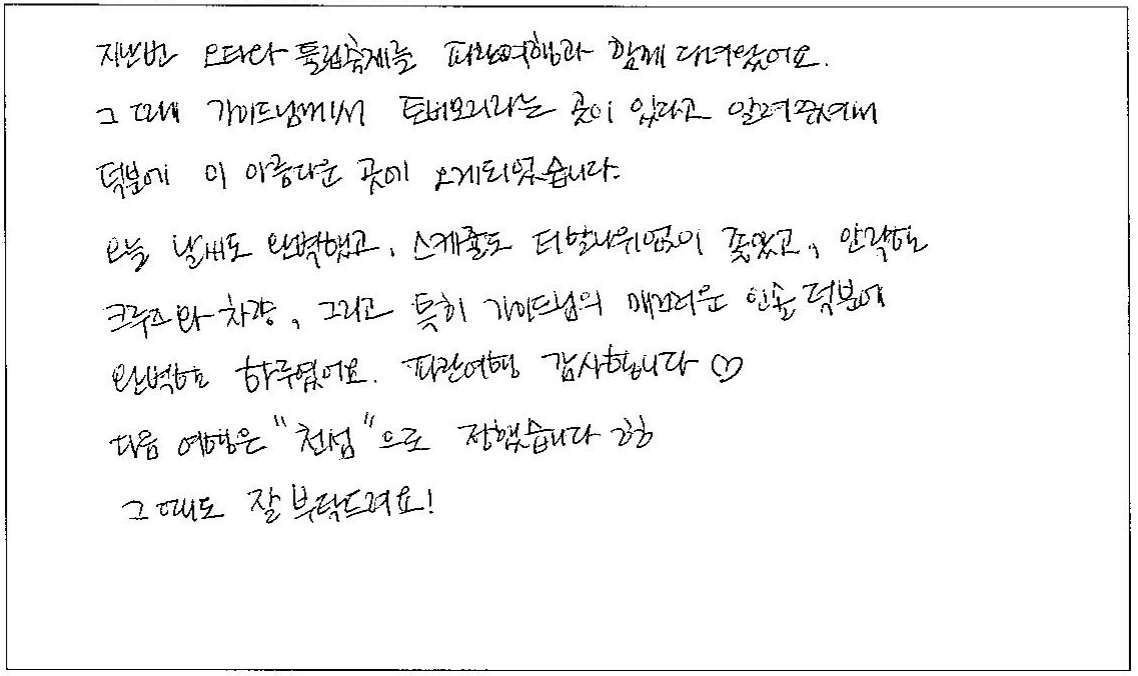 지난번 오타와 튤립축제를 파란여행과 함께 다녀왔어요.
그 때에 가이드님께서 토버모리라는 곳이 있다고 알려주셔서
덕분에 이 아름다운 곳에 오게되었습니다.
오늘 날씨도 완벽했고, 스케쥴도 더할나위없이 좋았고, 안락한
크루즈와 차량, 그리고 특히 가이드님의 매끄러운 인솔 덕분에
완벽한 하루였어요. 파란여행 감사합니다 ♡
다음 여행은 "천섬"으로 정했습니다 ㅎㅎ
그 때도 잘 부탁드려요!